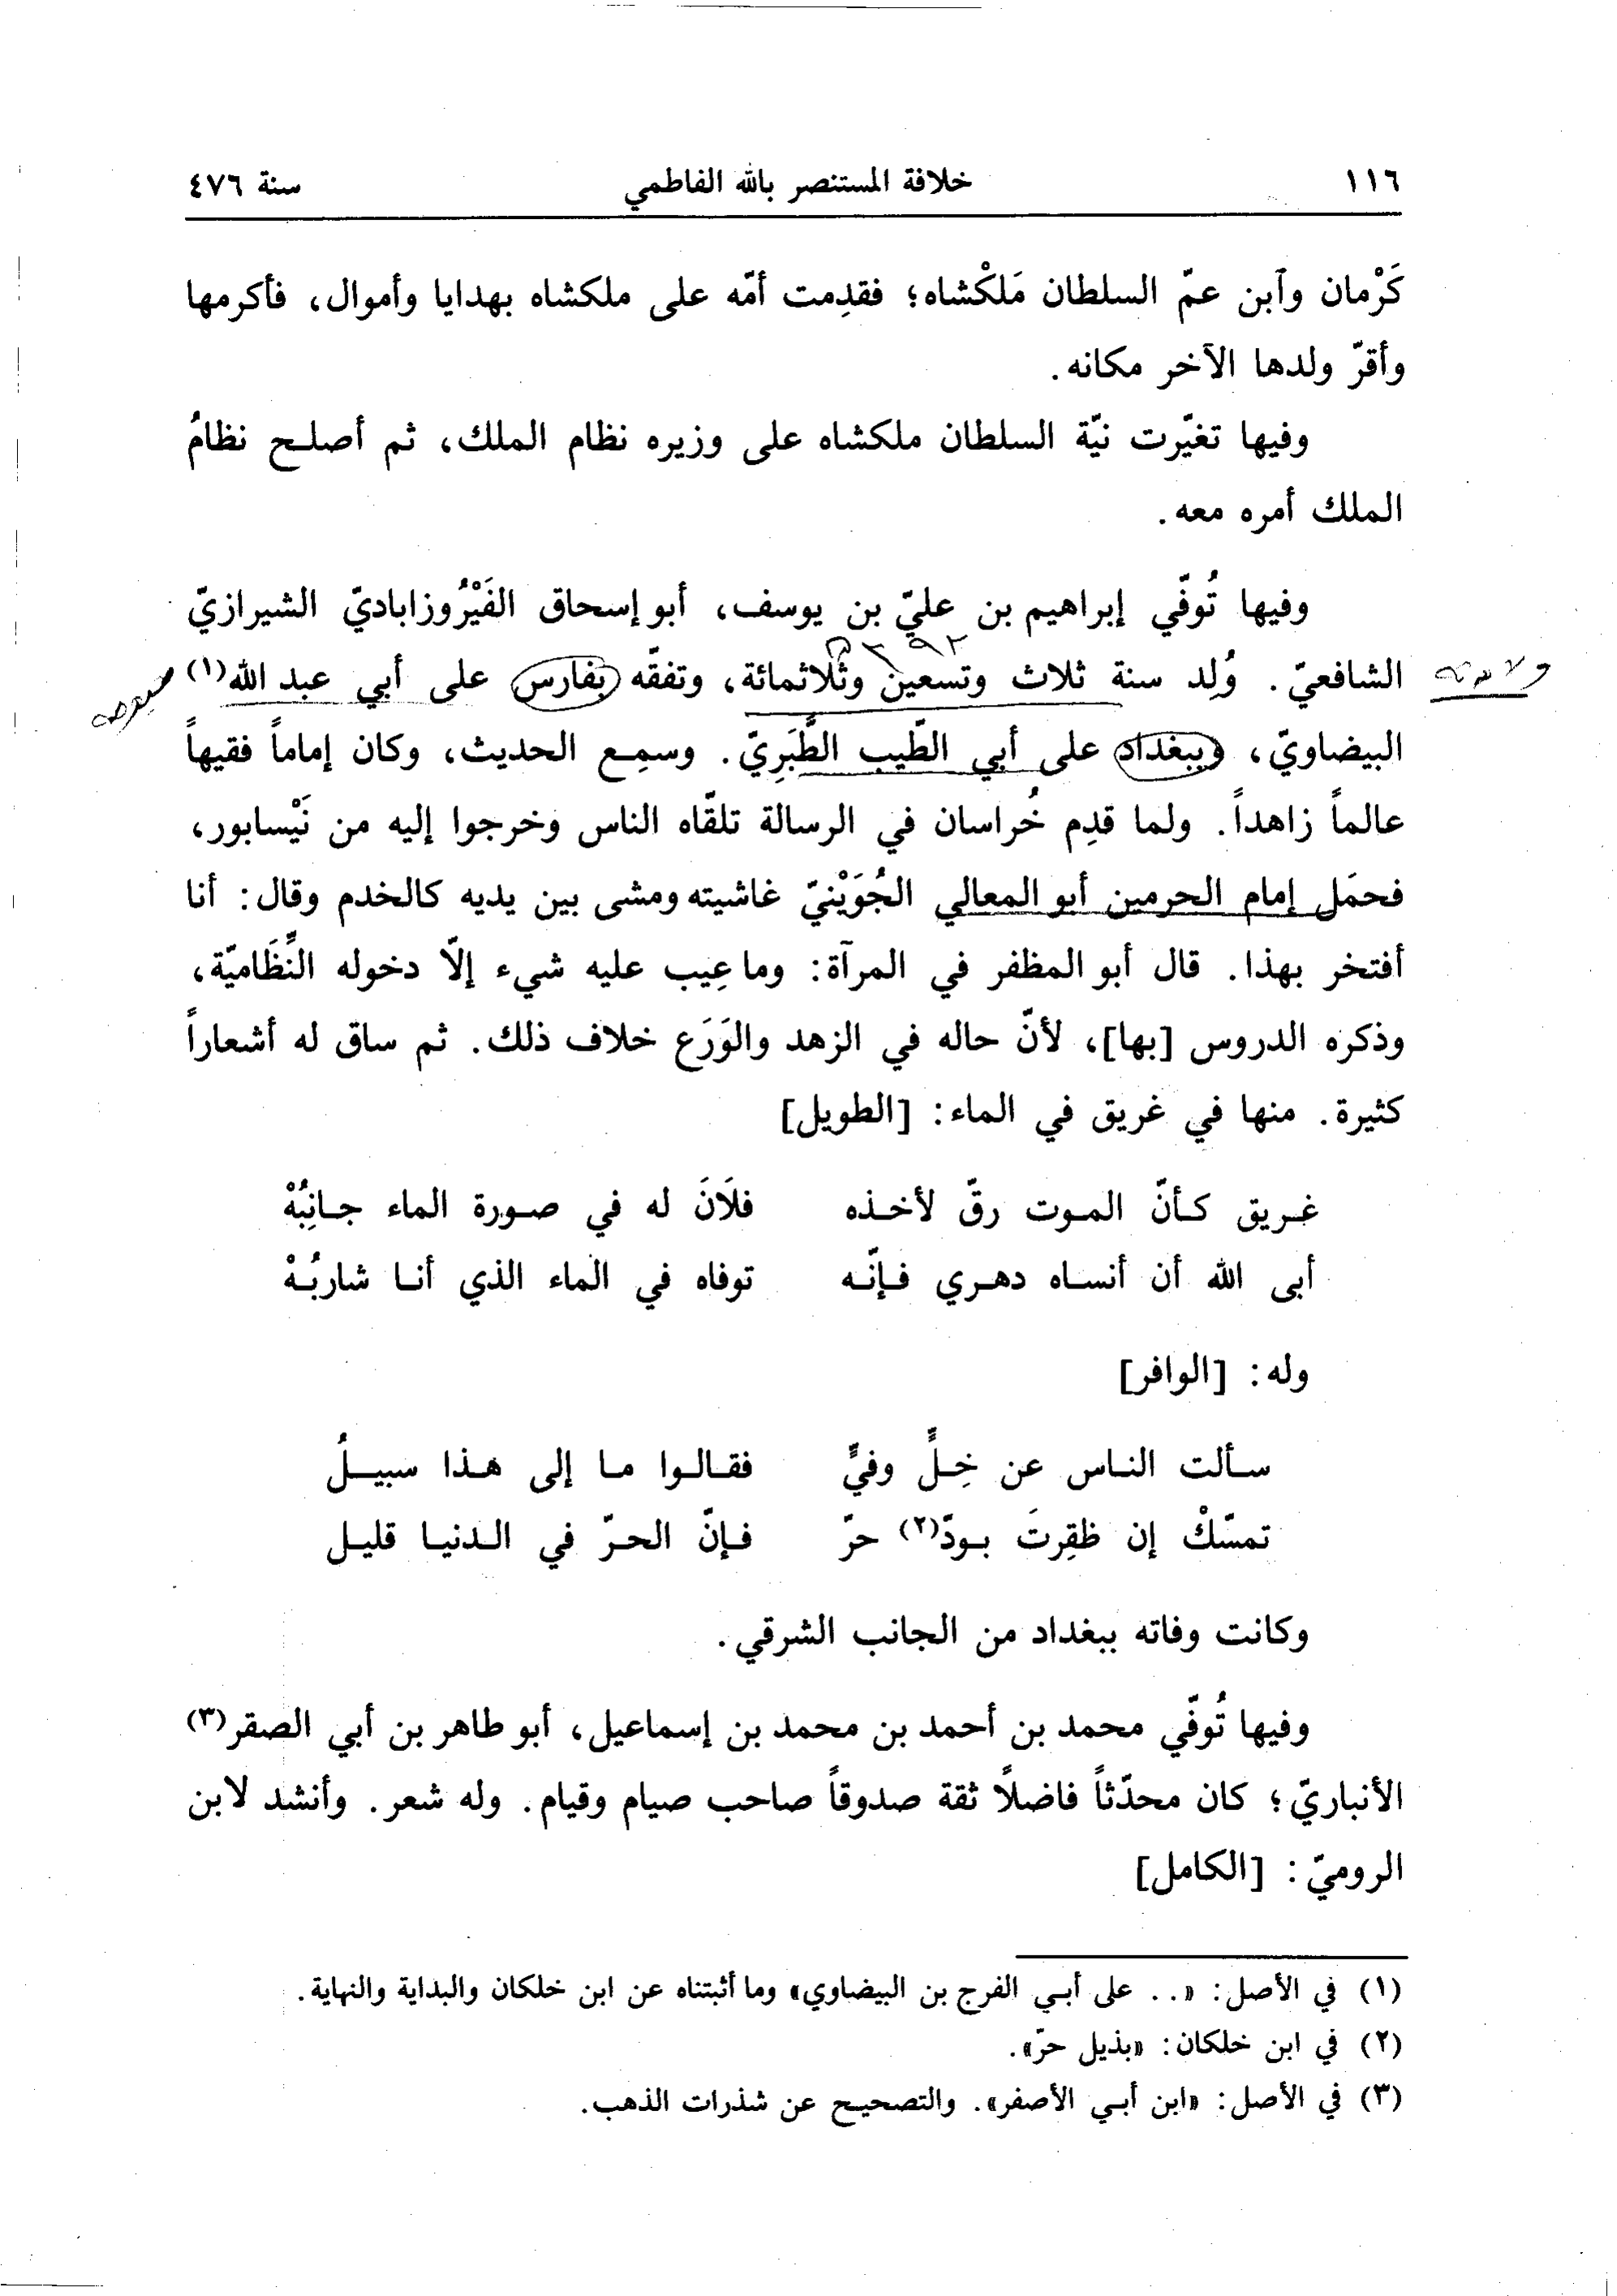 ١١٦ خلافة المستنصر بالله الفاطمي سنة ٤٧٦
كَرْمان وآبن عمّ السلطان مَلكْشاه؛ فقدِمت أمّه على ملكشاه بهدايا وأموال، فأكرمها
وأقرّ ولدها الآخر مكانه.
وفيها تغيّرت نيّة السلطان ملكشاه على وزيره نظام الملك، ثم أصلح نظامُ
الملك أمره معه.
وفيها تُوفّي إبراهيم بن عليّ بن يوسف، أبو إسحاق الفَيْرُوزاباديّ الشيرازيّ
الشافعيّ. وُلِد سنة ثلاث وتسعين وثلاثمائة، وتفقّه بفارس على أبي عبد الله(١)
البيضاويّ، وببغداد على أبي الطّيب الطَّبَرِيّ. وسمِع الحديث، وكان إماماً فقيهاً
عالماً زاهداً. ولما قدِم خُراسان في الرسالة تلقّاه الناس وخرجوا إليه من نَيْسابور،
فحمَل إمام الحرمين أبو المعالي الجُوَيْنيّ غاشيته ومشى بين يديه كالخدم وقال: أنا
أفتخر بهذا. قال أبو المظفر في المرآة: وما عِيب عليه شيء إلّا دخوله النِّظَاميّة،
وذكره الدروس [بها]، لأنّ حاله في الزهد والوَرَع خلاف ذلك. ثم ساق له أشعاراً
كثيرة. منها في غريق في الماء: [الطويل]
غريق كأنّ الموت رقّ لأخذه فلَانَ له في صورة الماء جانِبُهْ
أبى الله أن أنساه دهري فإنّه توفاه في الماء الذي أنا شاربُهْ
وله: [الوافر]
سألت الناس عن خِلٍّ وفيٍّ فقالوا ما إلى هذا سبيلُ
تمسّكْ إن ظفِرتَ بودّ(٢) حرّ فإنّ الحرّ في الدنيا قليل
وكانت وفاته ببغداد من الجانب الشرقي.
وفيها تُوفّي محمد بن أحمد بن محمد بن إسماعيل، أبو طاهر بن أبي الصقر(٣)
الأنباريّ؛ كان محدّثاً فاضلًا ثقة صدوقاً صاحب صيام وقيام. وله شعر. وأنشد لابن
الروميّ: [الكامل]
(١) في الأصل: «.. على أبي الفرج بن البيضاوي» وما أثبتناه عن ابن خلكان والبداية والنهاية.
(٢) في ابن خلكان: «بذيل حرّ».
(٣) في الأصل: «ابن أبي الأصفر». والتصحيح عن شذرات الذهب.